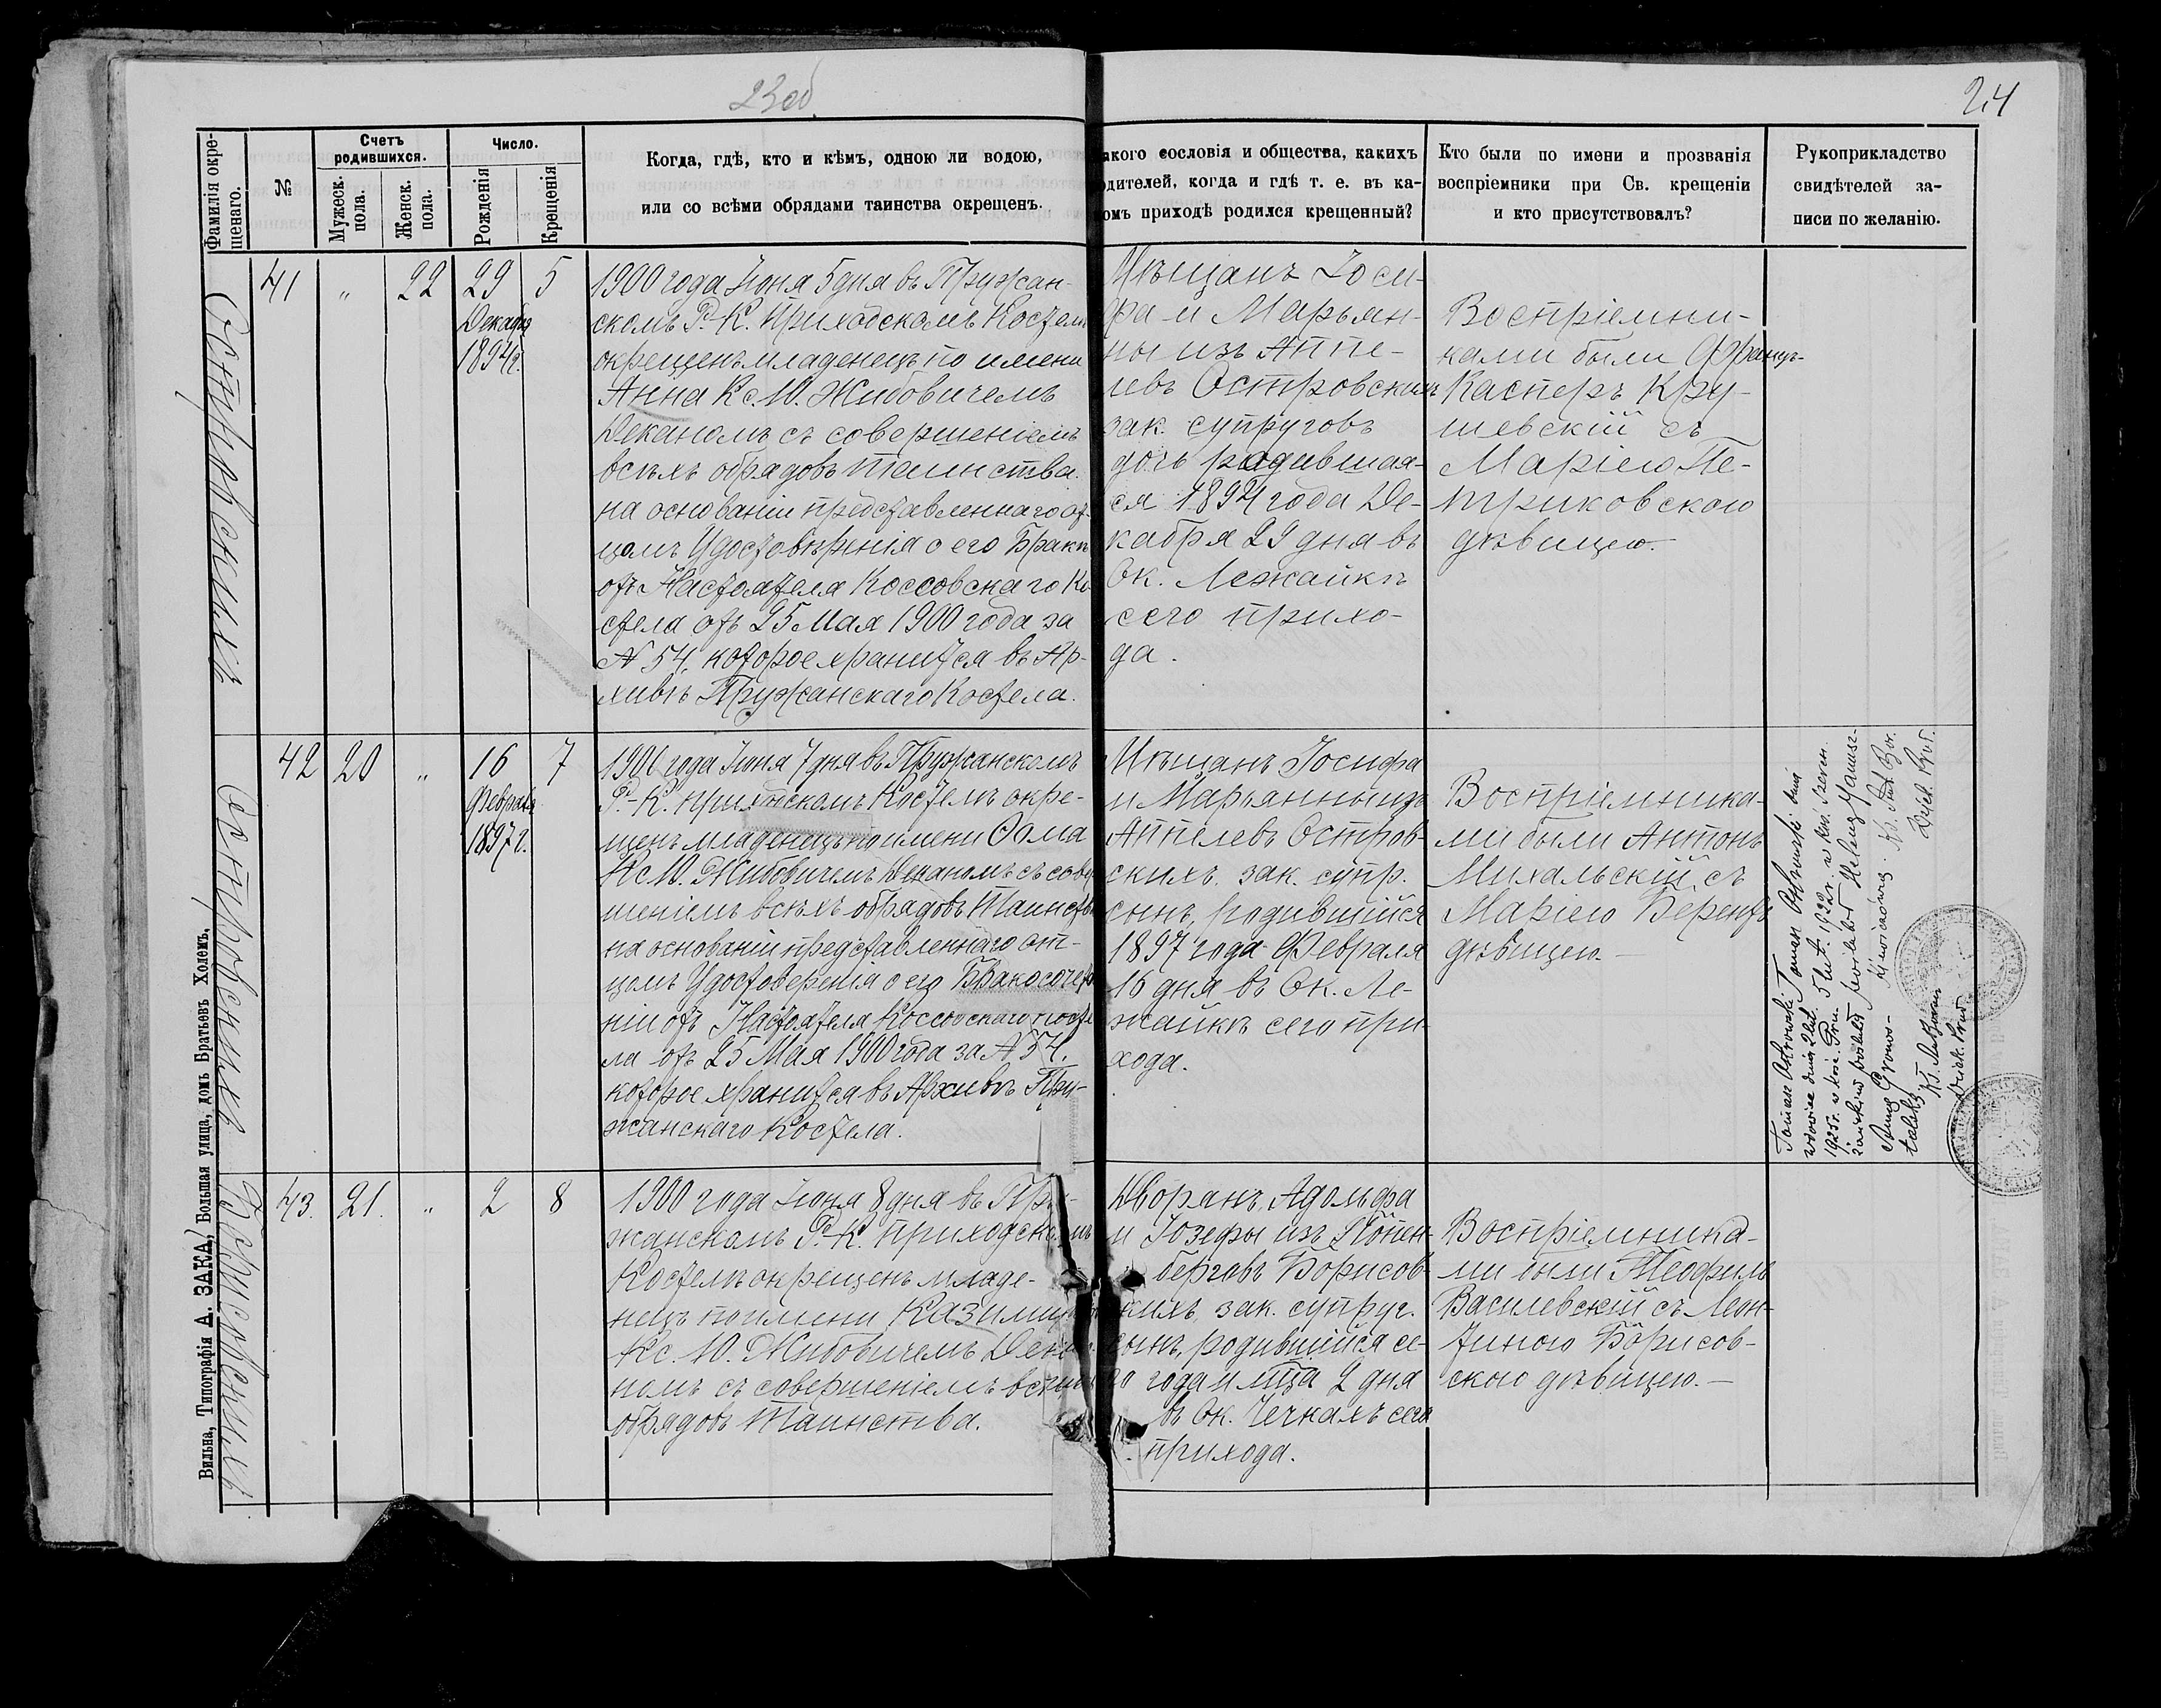 23об
24
Фамилія окре-
щенаго.
№
Счетъ
родившихся.
Мужеск.
пола.
Женск.
пола.
Число.
Рожденія
Крещенія
Когда, гдѣ, кто и кѣмъ, одною ли водою,
или со всѣми обрядами таинства окрещенъ.
акого сословія и общества, какихъ
одителей, когда и гдѣ т. е. въ ка-
омъ приходѣ родился крещенный?
Кто были по имени и прозванія
воспріемники при Св. крещеніи
и кто присутствовалъ?
Рукоприкладство
свидѣтелей за-
писи по желанію.
Островскихъ
41 " 22 29 5
Декабря
1894г.
1900 года Іюня 5 дня въ Пружан-
скомъ Р.-К. Приходскомъ Костелѣ
окрещенъ младенецъ по имени
Анна Кс. Ю. Жибовичемъ
Деканомъ съ совершеніемъ
всѣхъ обрядовъ Таинства.
на основаніи представленнаго от-
цомъ Удостовѣренія о его Бракѣ
отъ Настоятеля Коссовскаго Ко-
стела отъ 25 Мая 1900 года за
№ 54. которое хранится въ Ар-
хивѣ Пружанскаго Костела.
Мѣщанъ Іоси-
фа и Марьян-
ны изъ Аппе-
левъ Островскихъ
зак. супруговъ
дочь родившая-
ся 1894 года Де-
кабря 29 дня въ
Ок. Лежайкѣ
сего прихо-
да.
Воспріемни-
ками были Францъ-
Касперъ Кру-
шевскій съ
Маріею Пе-
триковскою
дѣвицею.
Островскихъ
42 20 " 16 7
Февраля
1897 г.
1900 года Іюня 7 дня въ Пружанскомъ
Р.-К. приходскомъ Костелѣ окре-
щенъ младенецъ по имени Ѳома
Кс. Ю. Жибовичемъ Деканомъ съ совер-
шеніемъ всѣхъ обрядовъ Таинства
на основаніи представленнаго от-
цомъ Удостоверенія о его Бракосочета-
ніи отъ Настоятеля Коссовскаго Косте-
ла отъ 25 Мая 1900 года за № 54.
которое хранится въ Архивѣ Пру-
жанскаго Костела.
Мѣщанъ Іосифа
и Марьянны изъ
Аппелевъ Остров-
скихъ. зак. супр.
сынъ, родившійся
1897 года Февраля
16 дня въ Ок. Ле-
жайкѣ сего при-
хода.
Воспріемника-
ми были Антонъ
Михальскій, съ
Маріею
дѣвицею.
Tomasz Ostrowski
1925 r. w koś.
Anną Gronos-
Tomasz Ostrowski dnia
5 lut. 1922 r. w koś.
poślubił Helenę
Борисовскихъ
43. 21. " 2 8
1900 года Іюня 8 дня въ Пру-
жанскомъ Р.-К. Приходскомъ
Костелѣ окрещенъ младе-
нецъ по имени Казиміръ
Кс. Ю. Жибовичемъ Дека-
номъ съ совершеніемъ всѣхъ
обрядовъ Таинства.
Дворянъ, Адольфа
и Іозефы изъ
берговъ Борисов-
кихъ, зак. супруг.
сынъ, родившійся се-
го года и мца 2 дня
въ Ок. Чечкахъ сего
прихода.
Воспріемника-
ми были Теофиль
Василевскій съ Леон-
тиною Борисов-
скою дѣвицею.
Вильна, Типографія А. ЗАКА, Большая улица, домъ Братьевъ Холемъ,